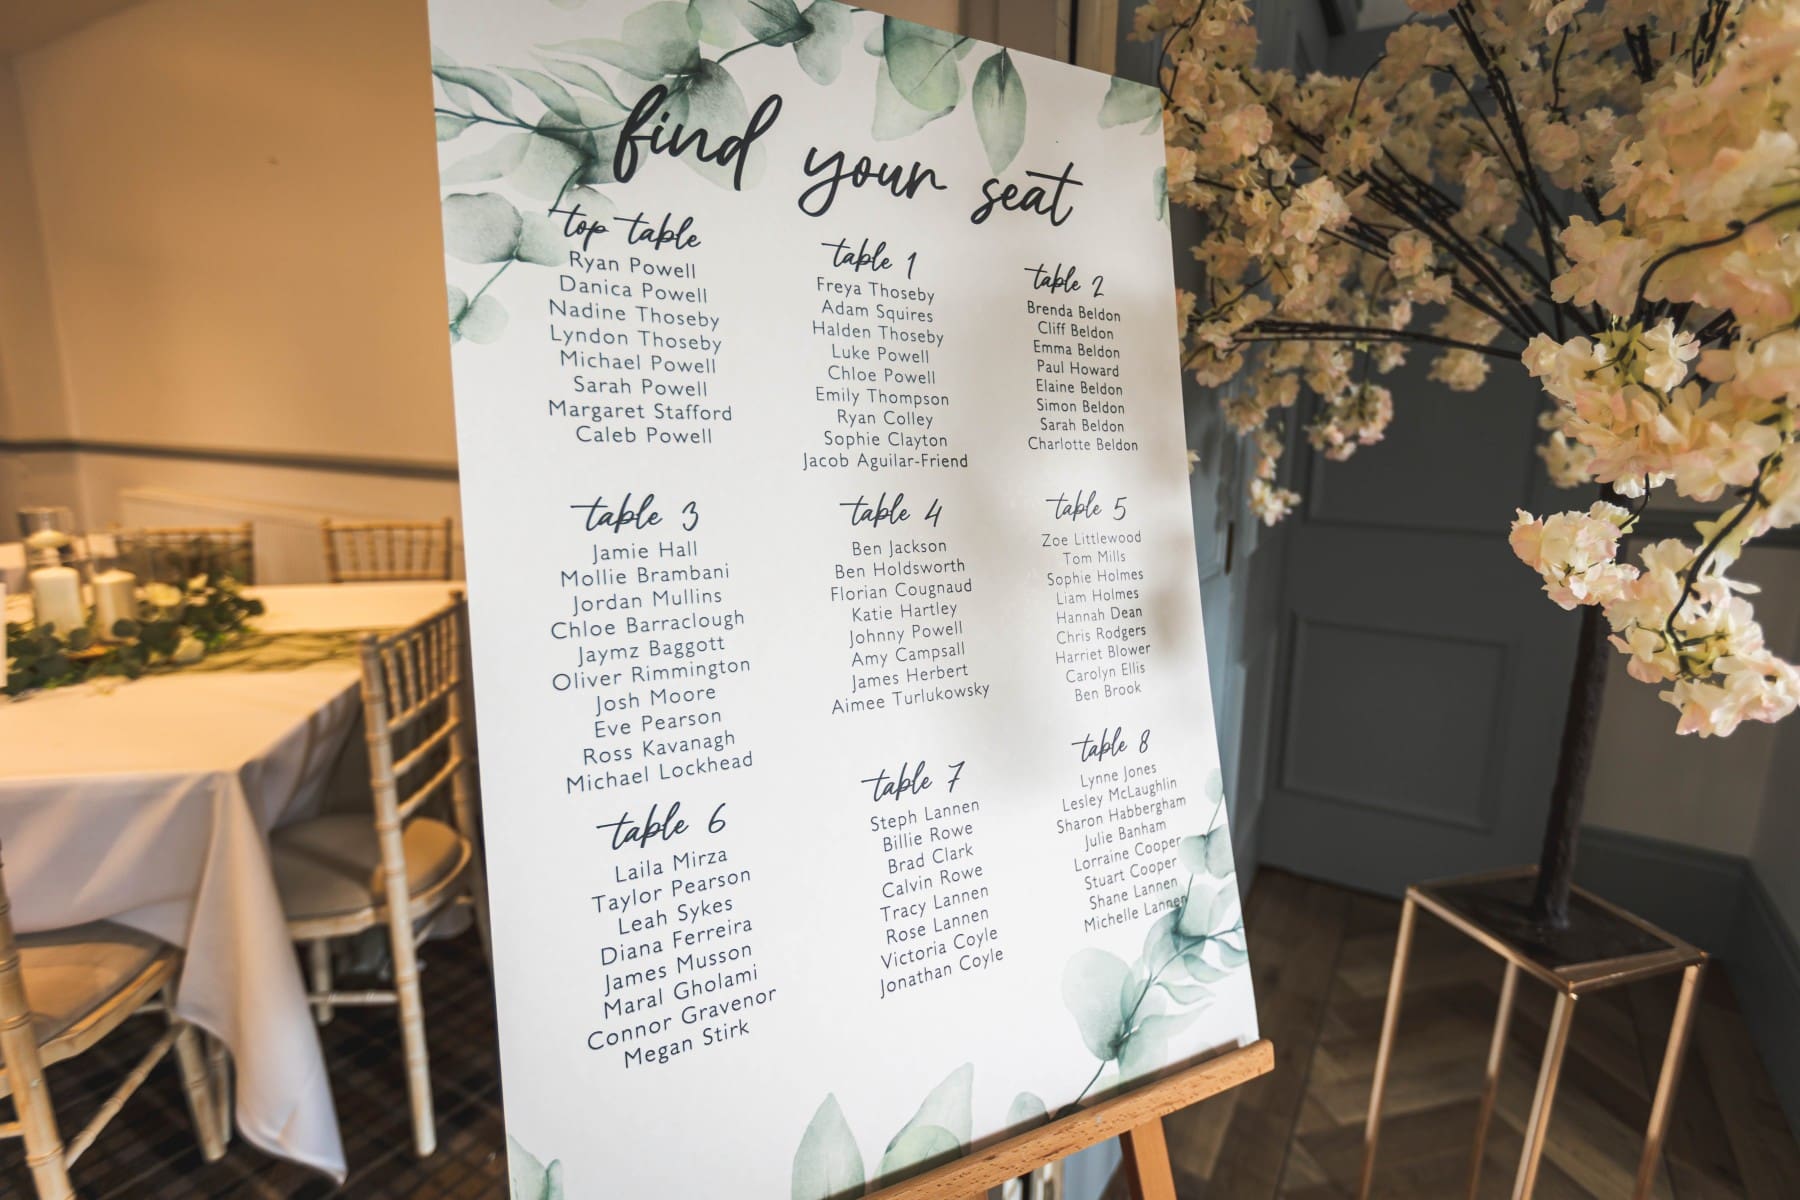 find your seat
top table
Ryan Powell
Danica Powell
Nadine Thoseby
Lyndon Thoseby
Michael Powell
Sarah Powell
Margaret Stafford
Caleb Powell
table 1
Freya Thoseby
Adam Squires
Halden Thoseby
Luke Powell
Chloe Powell
Emily Thompson
Ryan Colley
Sophie Clayton
Jacob Aguilar-Friend
table 2
Brenda Beldon
Cliff Beldon
Emma Beldon
Paul Howard
Elaine Beldon
Simon Beldon
Sarah Beldon
Charlotte Beldon
table 3
Jamie Hall
Mollie Brambani
Jordan Mullins
Chloe Barraclough
Jaymz Baggott
Oliver Rimmington
Josh Moore
Eve Pearson
Ross Kavanagh
Michael Lockhead
table 4
Ben Jackson
Ben Holdsworth
Florian Cougnaud
Katie Hartley
Johnny Powell
Amy Campsall
James Herbert
Aimee Turlukowsky
table 5
Zoe Littlewood
Tom Mills
Sophie Holmes
Liam Holmes
Hannah Dean
Chris Rodgers
Harriet Blower
Carolyn Ellis
Ben Brook
table 6
Laila Mirza
Taylor Pearson
Leah Sykes
Diana Ferreira
James Musson
Maral Gholami
Connor Gravenor
Megan Stirk
table 7
Steph Lannen
Billie Rowe
Brad Clark
Calvin Rowe
Tracy Lannen
Rose Lannen
Victoria Coyle
Jonathan Coyle
table 8
Lynne Jones
Lesley McLaughlin
Sharon Habbergham
Julie Banham
Lorraine Cooper
Stuart Cooper
Shane Lannen
Michelle Lannen